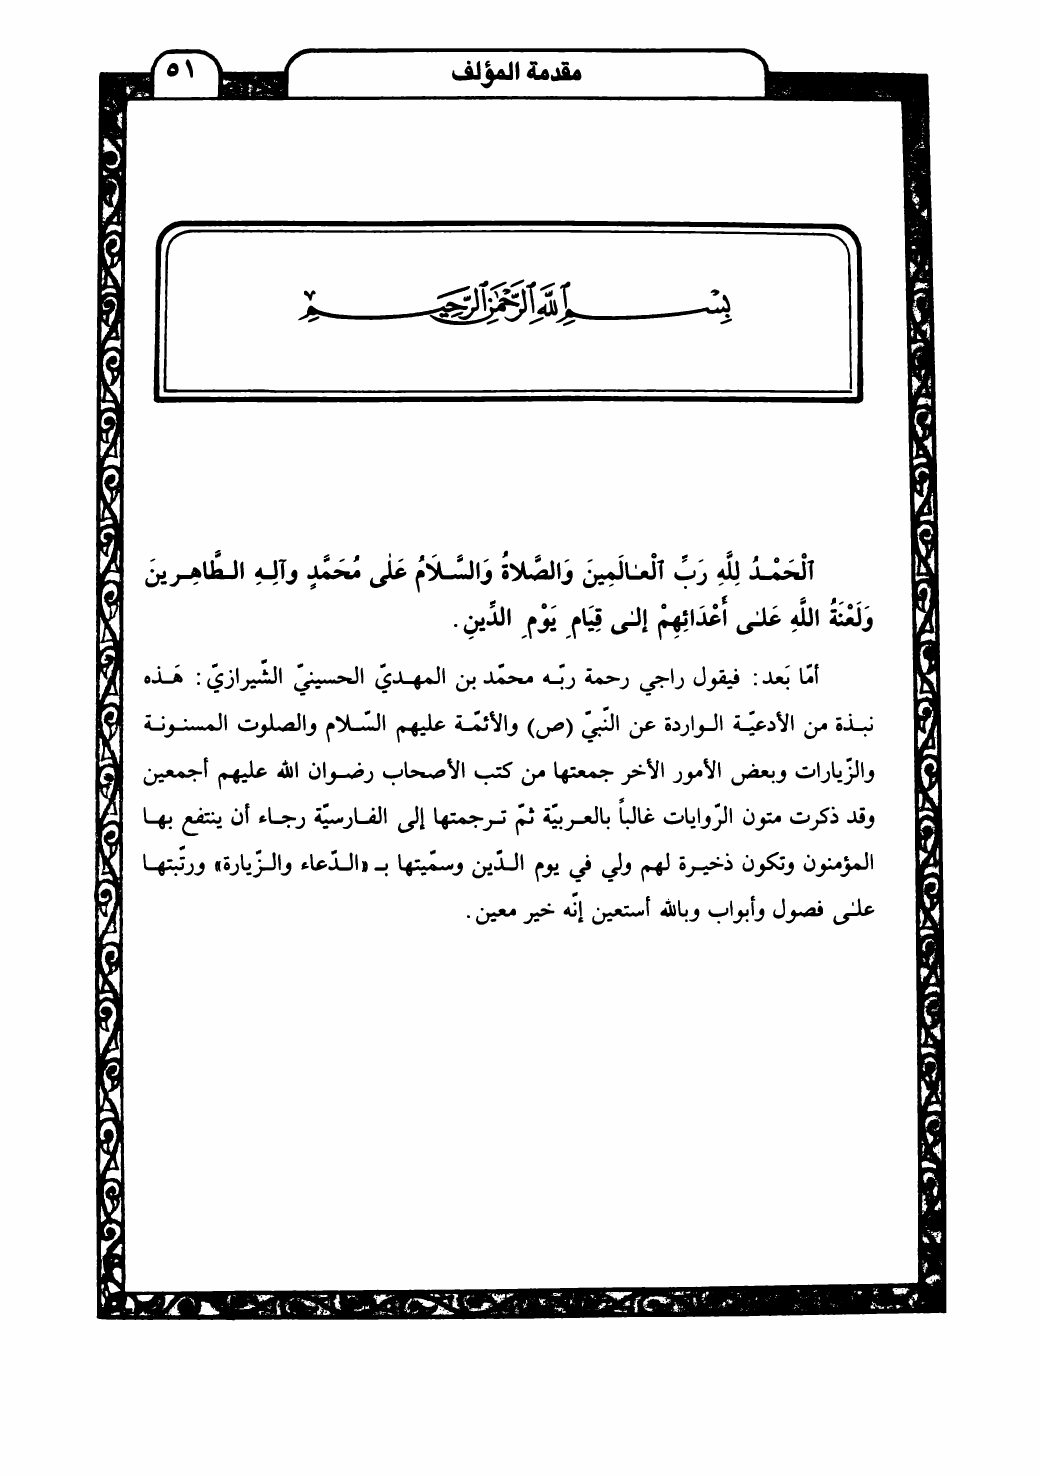 مقدمة المؤلف
٥١
بِسْمِ ٱللَّهِ ٱلرَّحْمَٰنِ ٱلرَّحِيمِ
ٱلْحَمْدُ لِلَّهِ رَبِّ ٱلْعَالَمِينَ وَالصَّلاةُ وَالسَّلَامُ عَلٰى مُحَمَّدٍ وآلِهِ الطَّاهِرينَ
وَلَعْنَةُ اللَّهِ عَلٰى أَعْدَائِهِمْ إلٰى قِيَامِ يَوْمِ الدِّينِ .
أمّا بَعد : فيقول راجي رحمة ربّه محمّد بن المهديّ الحسينيّ الشّيرازيّ : هَذه
نبذة من الأدعيّة الواردة عن النّبيّ (ص) والأئمّة عليهم السّلام والصلوت المسنونة
والزّيارات وبعض الأمور الأخر جمعتها من كتب الأصحاب رضوان الله عليهم أجمعين
وقد ذكرت متون الرّوايات غالباً بالعربيّة ثمّ ترجمتها إلى الفارسيّة رجاء أن ينتفع بها
المؤمنون وتكون ذخيرة لهم ولي في يوم الدّين وسمّيتها بـ «الدّعاء والزّيارة» ورتّبتها
على فصول وأبواب وبالله أستعين إنّه خير معين .